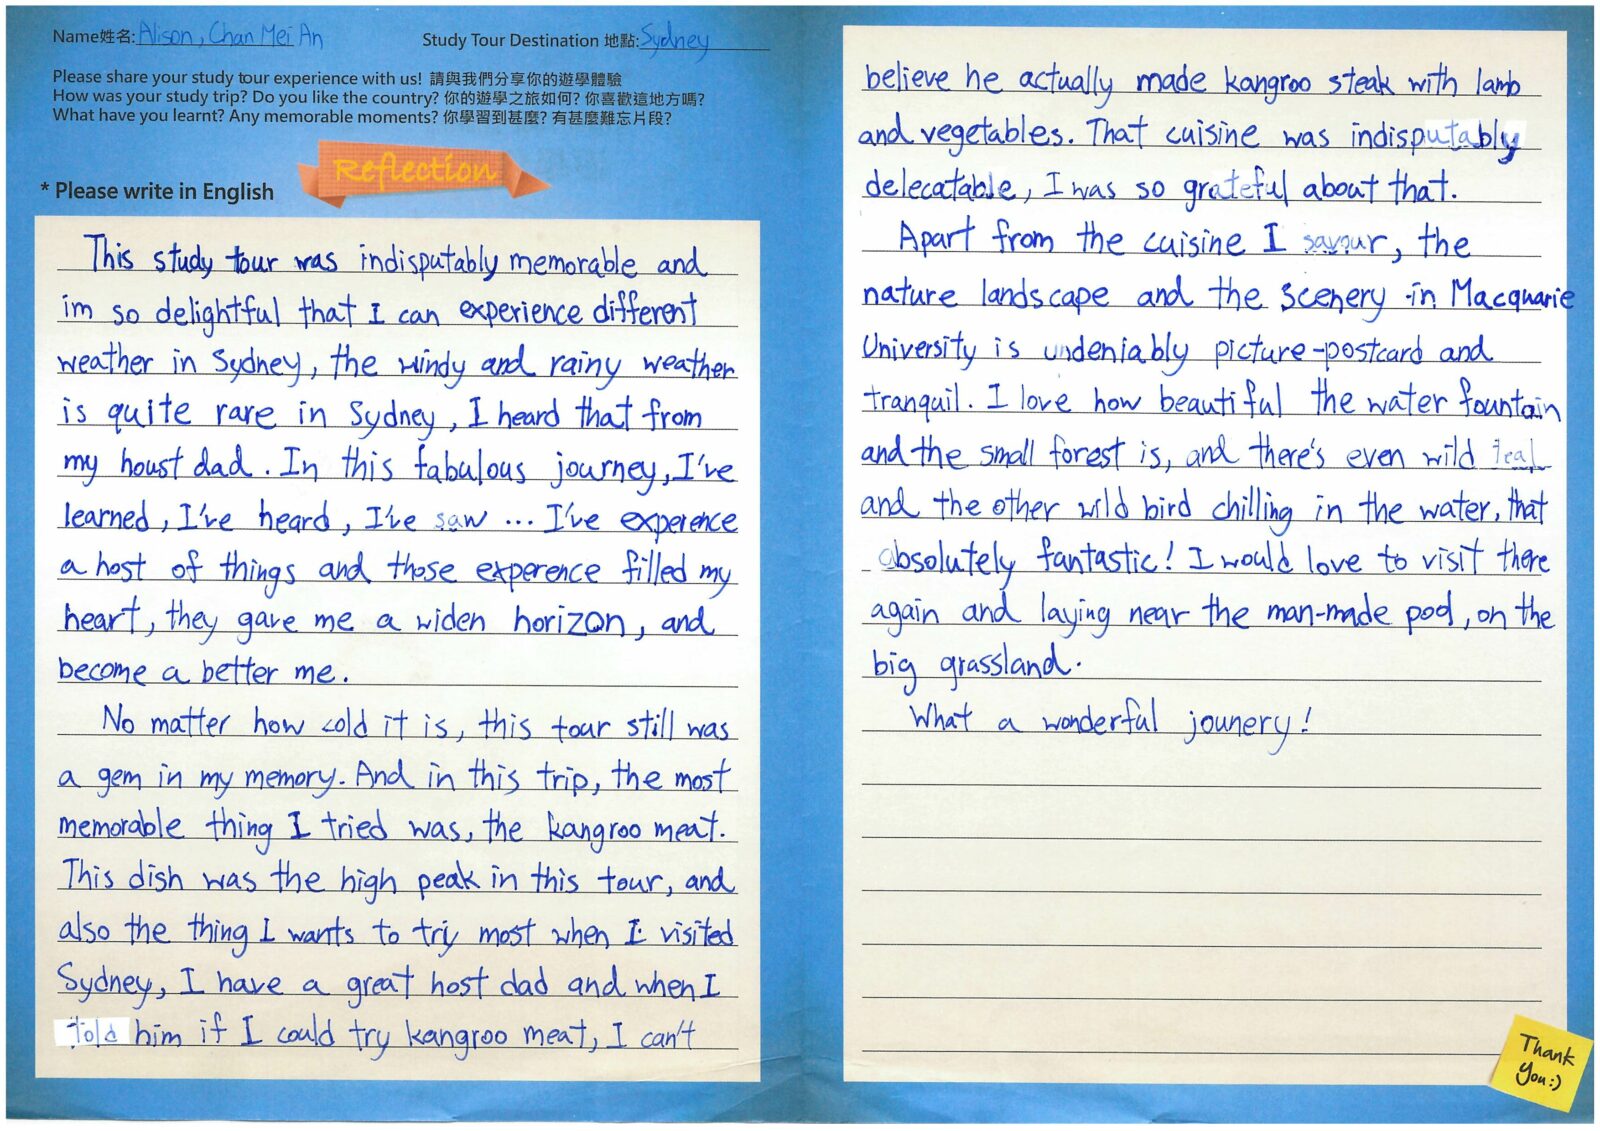 Name姓名: Alison, Chan Mei An
Study Tour Destination 地點: Sydney
Please share your study tour experience with us! 請與我們分享你的遊學體驗
How was your study trip? Do you like the country? 你的遊學之旅如何? 你喜歡這地方嗎?
What have you learnt? Any memorable moments? 你學習到甚麼? 有甚麼難忘片段?
Reflection
* Please write in English
This study tour was indisputably memorable and
im so delightful that I can experience different
weather in Sydney, the windy and rainy weather
is quite rare in Sydney, I heard that from
my houst dad. In this fabulous journey, I've
learned, I've heard, I've saw ... I've experence
a host of things and those experence filled my
heart, they gave me a widen horizon, and
become a better me.
No matter how cold it is, this tour still was
a gem in my memory. And in this trip, the most
memorable thing I tried was, the kangroo meat.
This dish was the high peak in this tour, and
also the thing I wants to try most when I visited
Sydney, I have a great host dad and when I
told him if I could try kangroo meat, I can't
believe he actually made kangroo steak with lamb
and vegetables. That cuisine was indisputably
delecatable, I was so grateful about that.
Apart from the cuisine I savour, the
nature landscape and the scenery in Macquarie
University is undeniably picture-postcard and
tranquil. I love how beautiful the water fountain
and the small forest is, and there's even wild teal
and the other wild bird chilling in the water, that
absolutely fantastic! I would love to visit there
again and laying near the man-made pod, on the
big grassland.
What a wonderful jounery!
Thank
You:)